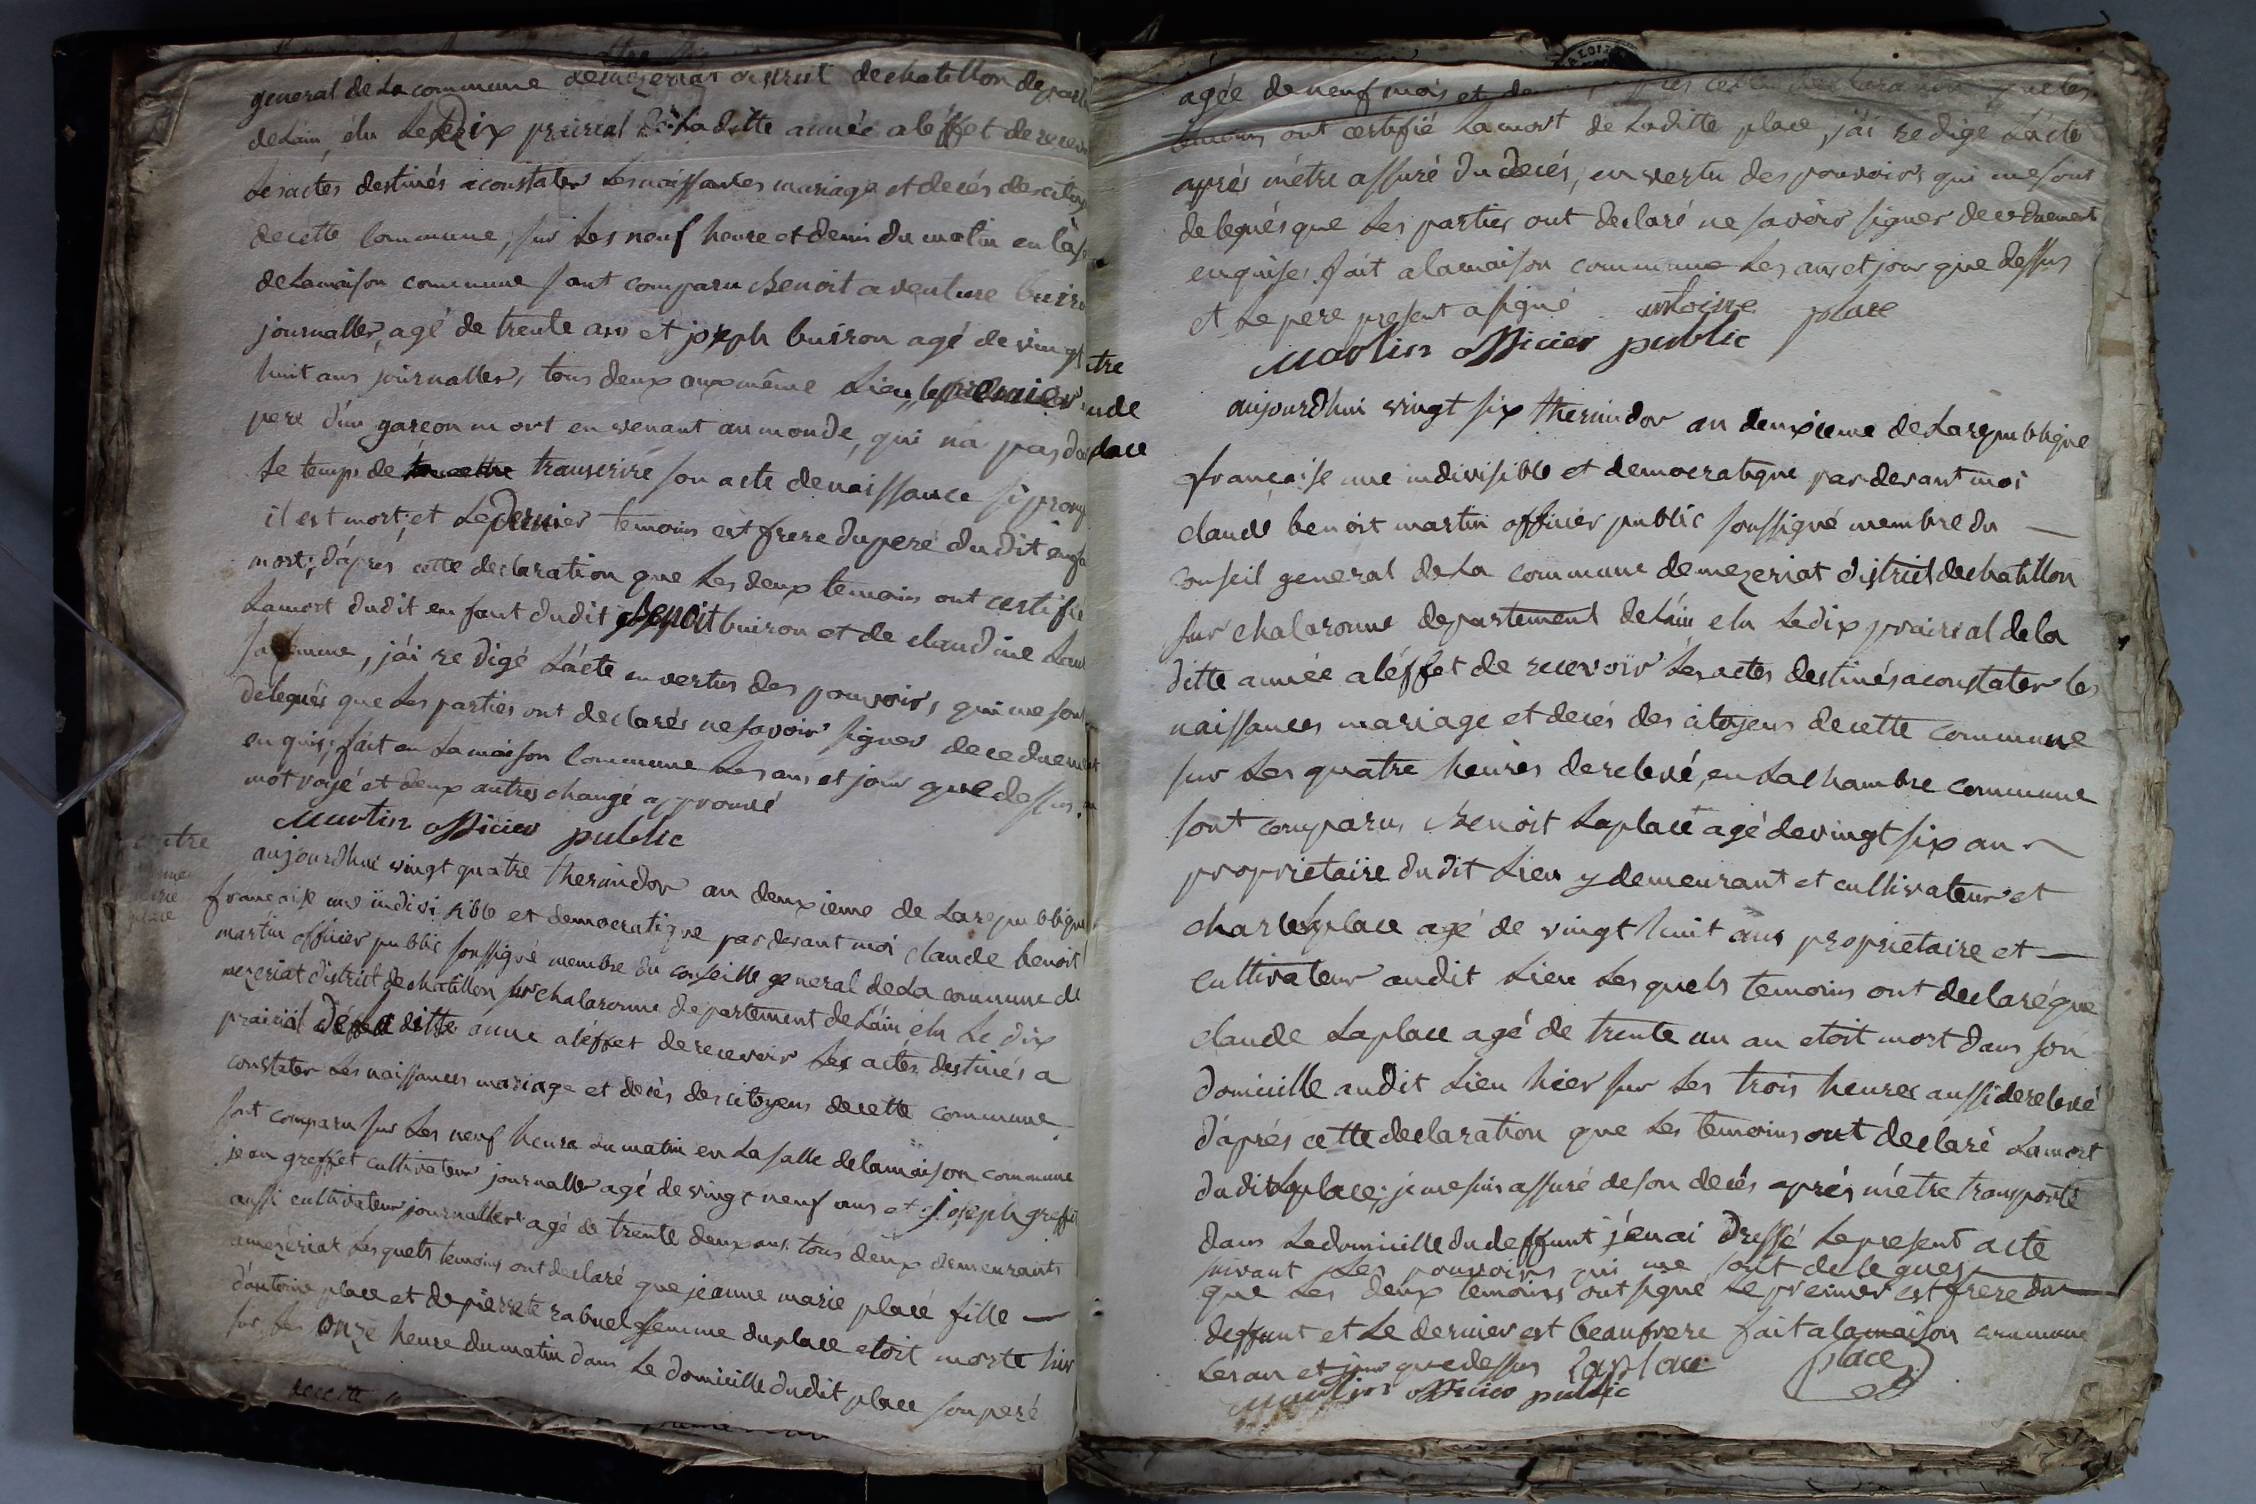 general de La commune demezeriat district dechatillon depart
deLain, élu Le dix prairial de La ditte année a léffet de recevo
Les actes destinés aconstater Les naissances mariage et decés des citoy
decette commune, sur Les neuf heure et demi du matin en la s
deLamaison commune sont comparu Benoit aventure buiro
journallier, agé de trente ans et joseph buiron agé de vingt
huit ans journallier, tous deux aux même Lieu, le premier
pere d'un garcon mort en venant au monde, qui na pas d
Le temps de transcrire son acte denaissance si promp
il est mort; et Le dernier temoins est frere du peré du dit enfa
mort; d'aprés cette declaration que Les deux temoins ont certifié
Lamort dudit enfant dudit Benoit buiron et de claudine Lau
sa femme, j'ái redigé L'ácte en vertus des pouvoirs, qui me sont
delegués que Les parties ont declarés ne savoir signer dece duement
enquis; fait en La maison commune Les ans et jour que dessus.
mot rayé et deux autres changé approuvé
Martin officier public
aujourdhui vingt quatre thermidor an deuxieme de La republique
francoise une indivisible et democratique par devant moi claude benoit
martin officier public soussigné membre du conseille general deLa commune de
mezeriat district de chatillon sur chalaronne departement deLain élu Le dix
prairial de La ditte anné a léffet de recevoir Les actes destinés a
constater Les naissances mariage et decés des citoyens decette commune
sont comparu sur Les neuf heure du matin en La salle delamaison commune
jean greffet cultivateur journallier agé de vingt neuf ans et joseph greffet
aussi cultivateur journallier agé de trente deux ans. tous deux demeurants
amezériat Lesquels temoins ont declaré que jeanne marie placé fille
d'ántoine place et de pierrete rabuel femme du place etoit morte hier
sur Les onze heure du matin dans Le domicille dudit place son peré
agée de neuf mois et
temoins ont certifié Lamort de Laditte place, j'ái redigé L'ácte
aprés métre assuré du decés, en vertu des pouvoirs qui me sont
delegués que Les parties ont declaré ne savoir signer dece duement
enquises. fait alamaison commune Les ans et jour que dessus
et Le pere present a signé antoine place
Martin officier public
aujourdhui vingt six thermidor an deuxieme de La republique
française une indivisible et democratique par devant moi
claude benoit martin officier public soussigné membre du
conseil general de La commune demezeriat district dechatillon
sur chalaronne departement deLáin elu Le dix prairial dela
ditte année a léffet de recevoir Les actes destinés aconstater les
naissances mariage et decés des citoyens decette commune
sur Les quatre heures derelevé, en La chambre commune
sont comparu, Benoit Laplace agé devingt six an
proprietaire dudit Lieu y demeurant et cultivateur et
charles place agé de vingt huit ans proprietaire et
cultivateur audit Lieu Lesquels temoins ont declaré que
claude Laplace agé de trente un an etoit mort dans son
domicille audit Lieu hier sur Les trois heures aussi derelevé
d'áprés cette declaration que Les temoins ont declaré Lamort
dudit Laplace; je me suis assuré de son decés aprés m'étre transporté
dans Ledomicille du deffunt j'en ai dressé Lepresent acte
suivant Les pouvoirs qui me sont delegues
que Les deux temoins ont signé Le preimer est frere du
deffunt et Le dernier est beaufrere fait alamaison commune
Les an et jour que dessus Laplace place
Martin officier public